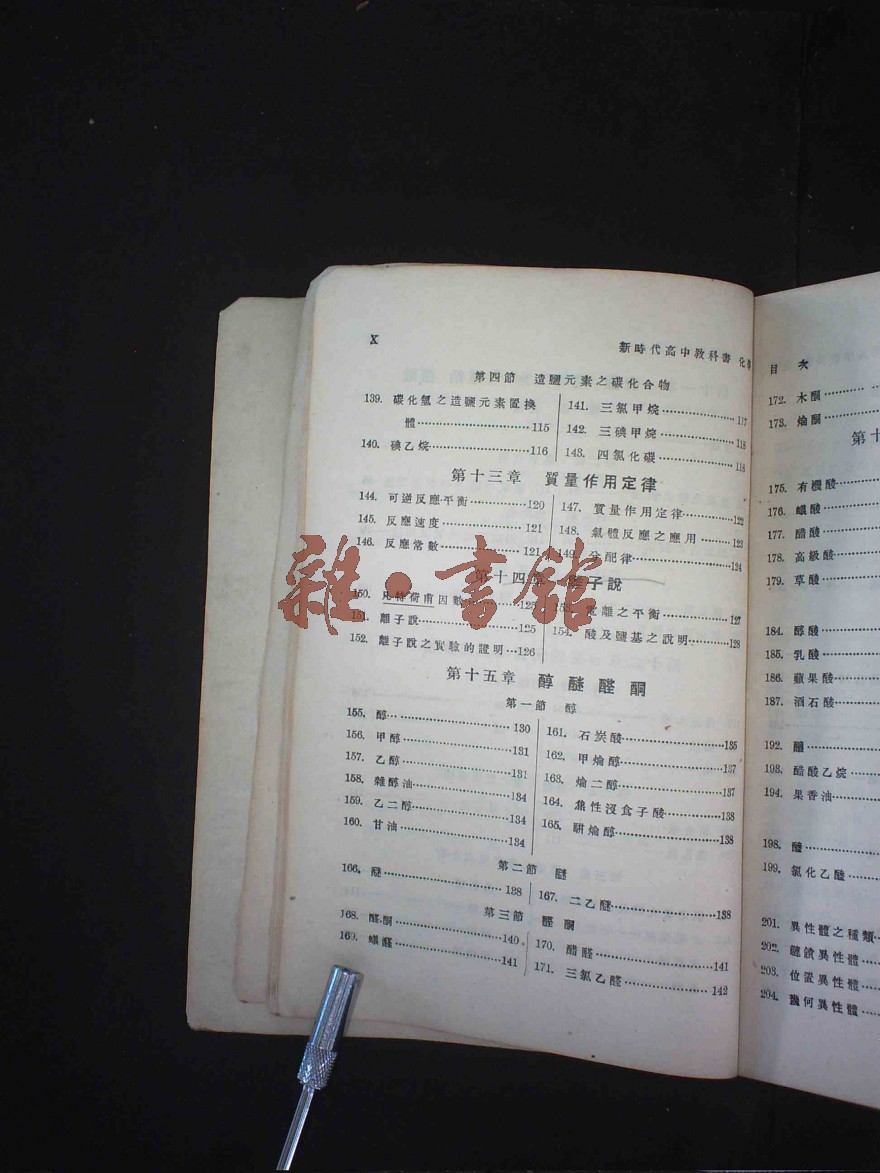 X
新時代高中教科書 化學
第四節 造鹽元素之碳化合物
139. 碳化氫之造鹽元素置換
體……………………115
140. 碘乙烷……………………116
141. 三氯甲烷……………………117
142. 三碘甲烷……………………118
143. 四氯化碳……………………118
第十三章 質量作用定律
144. 可逆反應平衡……………………120
145. 反應速度……………………121
146. 反應常數……………………121
147. 質量作用定律……………………122
148. 氣體反應之應用……………………123
149. 分配律……………………124
第十四章 離子說
150. 凡特荷甫因數……………………125
151. 離子說……………………125
152. 離子說之實驗的證明…126
153. 電離之平衡……………………127
154. 酸及鹽基之說明……………………128
第十五章 醇醚醛酮
第一節 醇
155. 醇……………………130
156. 甲醇……………………131
157. 乙醇……………………131
158. 雜醇油……………………134
159. 乙二醇……………………134
160. 甘油……………………134
161. 石炭酸……………………135
162. 甲煰醇……………………137
163. 煰二醇……………………137
164. 焦性沒食子酸……………………138
165. 駢煰醇……………………138
第二節 醚
166. 醚……………………138
167. 二乙醚……………………138
第三節 醛酮
168. 醛酮……………………140
169. 蟻醛……………………141
170. 醋醛……………………141
171. 三氯乙醛……………………142
目次
172. 木酮
173. 煰酮
第十
175. 有機酸
176. 蟻酸
177. 醋酸
178. 高級酸
179. 草酸
184. 醇酸
185. 乳酸
186. 蘋果酸
187. 酒石酸
192.
193. 醋酸乙烷
194. 果香油
198.
199. 氯化乙醯
201. 異性體之種類
202. 鏈鎖異性體
203. 位置異性體
204. 幾何異性體
雜·書館